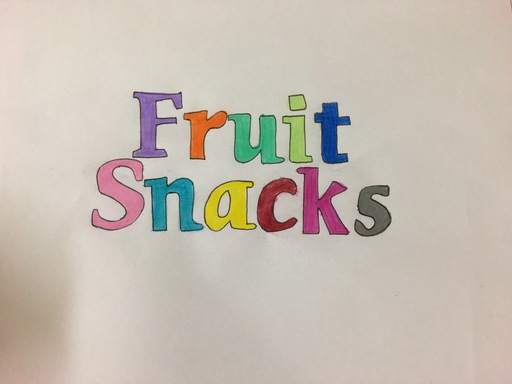 Fruit
Snacks